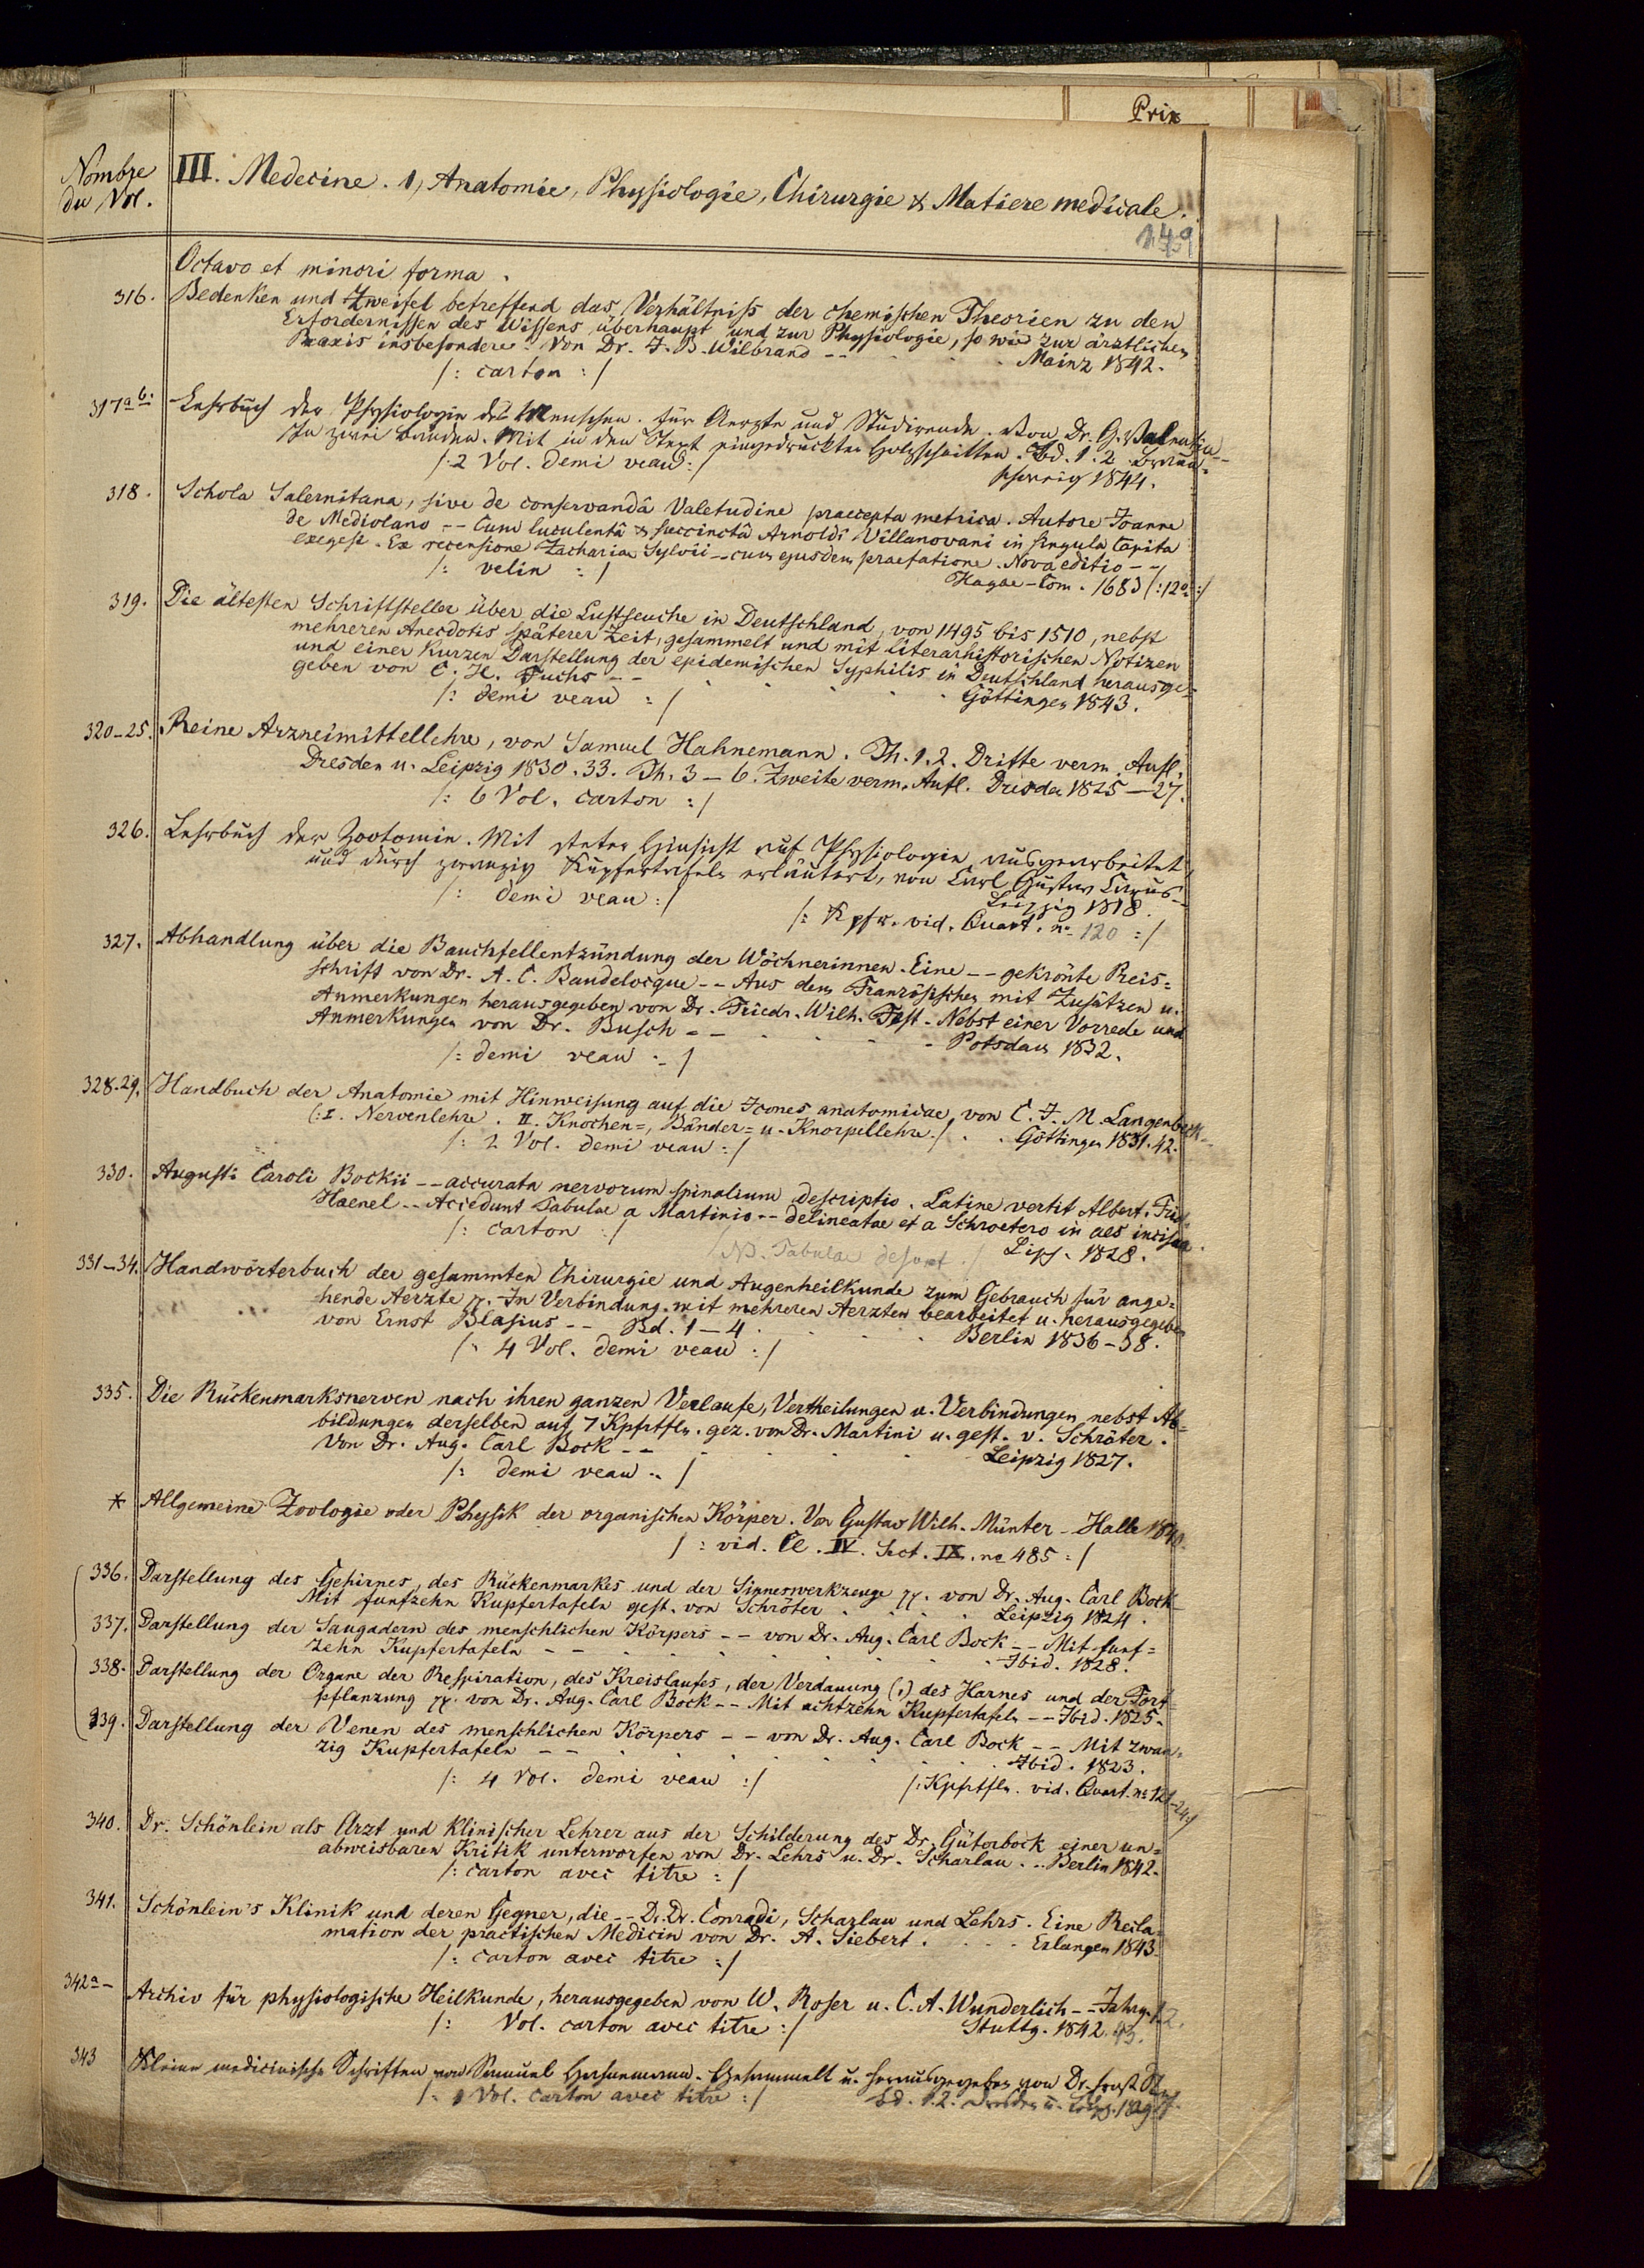 Prix
Nombre
du Vol.
III. Medecine. 1, Anatomie, Physiologie, Chirurgie & Matiere medicale.
149
Octavo et minori forma.
316. Bedenken und Zweifel betreffend das Verhältniss der chemischen Theorien zu den
Erfordernissen des Wissens überhaupt und zur Physiologie, so wie zur ärztlichen
Praxis insbesondere. Von Dr. J. B. Wilbrand -- Mainz 1842.
/: carton :/
317a b. Lehrbuch der Physiologie des Menschen. für Aerzte und Studirende. Von Dr. G. Valentin --
In zwei Bänden. Mit in den Text eingedruckten Holzschnitten. Bd. 1. 2. Braun=
/: 2 Vol. demi veau :/ schweig 1844.
318. Schola Salernitana, sive de conservandâ Valetudine praecepta metrica. Autore Joanne
de Mediolano -- Cum luculentâ & succinctâ Arnoldi Villanovani in singula Capita
exegesi. Ex recensione Zachariae Sylvii -- cum ejusdem praefatione. Nova editio --
/: velin :/ Hagae-Com. 1683 /: 12º :/
319. Die ältesten Schriftsteller über die Lustseuche in Deutschland, von 1495 bis 1510, nebst
mehreren Anecdotis späterer Zeit, gesammelt und mit literarhistorischen Notizen
und einer kurzen Darstellung der epidemischen Syphilis in Deutschland herausge=
geben von C. H. Fuchs -- Göttingen 1843.
/: demi veau :/
320-25. Reine Arzneimittellehre, von Samuel Hahnemann. Th. 1. 2. Dritte verm. Aufl.
Dresden u. Leipzig 1830. 33. Th. 3-6. Zweite verm. Aufl. Dresden 1825-27.
/: 6 Vol. carton :/
326. Lehrbuch der Zootomie. Mit steter Hinsicht auf Physiologie ausgearbeitet,
und durch zwanzig Kupfertafeln erläutert, von Carl Gustav Carus --
/: demi veau :/ Leipzig 1818.
/: Kpfr. vid. Quart. nº 120 :/
327. Abhandlung über die Bauchfellentzündung der Wöchnerinnen. Eine -- gekrönte Preis=
schrift von Dr. A. C. Baudelocque -- Aus dem Französischen mit Zusätzen u.
Anmerkungen herausgegeben von Dr. Friedr. Wilh. Fest. Nebst einer Vorrede und
Anmerkungen von Dr. Busch -- Potsdam 1832.
/: demi veau :/
328.29. Handbuch der Anatomie mit Hinweisung auf die Icones anatomicae, von C. J. M. Langenbeck --
(: I. Nervenlehre. II. Knochen=, Bänder= u. Knorpellehre :/ Göttingen 1831. 42.
/: 2 Vol. demi veau :/
330. Augusti Caroli Bockii -- accurata nervorum spinalium descriptio. Latine vertit Albert. Frid.
Haenel -- Accedunt Tabulae a Martinio -- delineatae et a Schroetero in aes incisae.
/: carton :/ /NB. Tabulae desunt./ Lips. 1828.
331-34. Handwörterbuch der gesammten Chirurgie und Augenheilkunde zum Gebrauch für ange=
hende Aerzte pp. In Verbindung mit mehreren Aerzten bearbeitet u. herausgegeben
von Ernst Blasius -- Bd. 1-4. Berlin 1836-38.
/: 4 Vol. demi veau :/
335. Die Rückenmarksnerven nach ihren ganzen Verlaufe, Vertheilungen u. Verbindungen nebst Ab=
bildungen derselben auf 7 Kpfrtfln. gez. von Dr. Martini u. gest. v. Schröter.
Von Dr. Aug. Carl Bock -- Leipzig 1827.
/: demi veau :/
* Allgemeine Zoologie oder Physik der organischen Körper. Von Gustav Wilh. Münter - Halle 1840.
/: vid. Cl. IV. Sect. IX. nº 485 :/
336. Darstellung des Gehirnes, des Rückenmarkes und der Sinneswerkzeuge pp. von Dr. Aug. Carl Bock
Mit funfzehn Kupfertafeln gest. von Schröter Leipzig 1824.
337. Darstellung der Saugadern des menschlichen Körpers -- von Dr. Aug. Carl Bock -- Mit funf=
zehn Kupfertafeln -- Ibid. 1828.
338. Darstellung der Organe der Respiration, des Kreislaufes, der Verdauung (,) des Harnes und der Fort=
pflanzung pp. von Dr. Aug. Carl Bock -- Mit achtzehn Kupfertafeln -- Ibid. 1825.
339. Darstellung der Venen des menschlichen Körpers -- von Dr. Aug. Carl Bock -- Mit zwan=
zig Kupfertafeln -- Ibid. 1823.
/: 4 Vol. demi veau :/ /: Kpfrtfln. vid. Quart. nº 121-24 :/
340. Dr. Schönlein als Arzt und klinischer Lehrer aus der Schilderung des Dr. Güterbock einer un=
abweisbaren Kritik unterworfen von Dr. Lehrs u. Dr. Scharlau. .. Berlin 1842.
/: carton avec titre :/
341. Schönlein's Klinik und deren Gegner, die -- D. Dr. Conradi, Scharlau und Lehrs. Eine Recla=
mation der practischen Medicin von Dr. A. Siebert. Erlangen 1843.
/: carton avec titre :/
342a- Archiv für physiologische Heilkunde, herausgegeben von W. Roser u. C. A. Wunderlich -- Jahrg. 1. 2.
/: Vol. carton avec titre :/ Stuttg. 1842. 43.
343 Kleine medicinische Schriften von Samuel Hahnemann. Gesammelt u. herausgegeben von Dr. Ernst
/: 1 Vol. carton avec titre :/ Bd. 1. 2. Dresden u. Leipz. 1829.